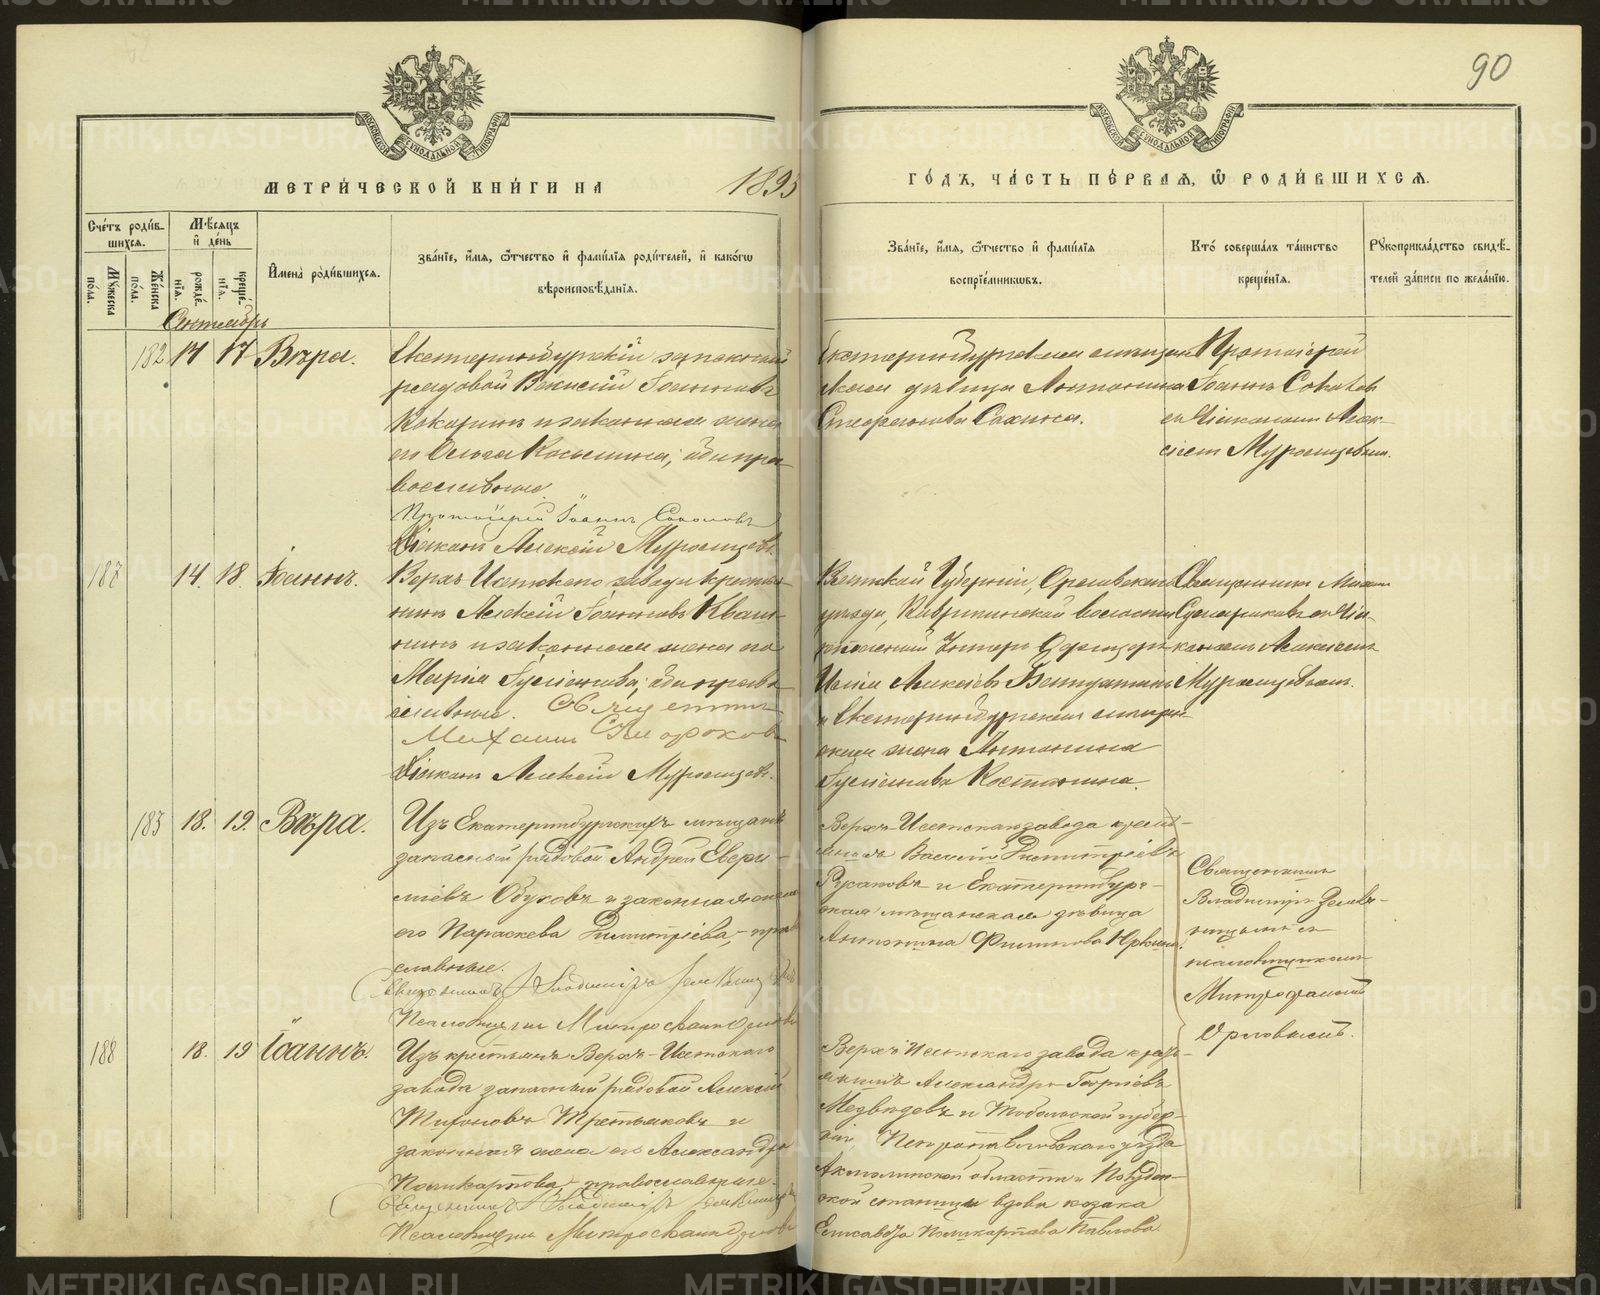 90
МОСКОВСКОЙ СѴНОДАЛЬНОЙ ТИПОГРАФІИ
МОСКОВСКОЙ СѴНОДАЛЬНОЙ ТИПОГРАФІИ
МЕТРИ́ЧЕСКОЙ КНИ́ГИ НА 1895
ГО́ДЪ, ЧА́СТЬ ПЕ́РВАЯ, Ѡ РОДИ́ВШИХСЯ.
Сче́тъ роди́в-
шихся.
Мѣ́сяцъ
и҆ де́нь
Му́жеска
по́ла.
Же́нска
по́ла.
рожде́-
нїя.
креще́-
нїя.
И҆мена̀ роди́вшихся.
Зва́нїе, и҆́мя, ѻ҆́тчество и҆ фами́лїя роди́телей, и҆ како́гѡ
вѣроисповѣ́данїя.
Зва́нїе, и҆́мя, ѻ҆́тчество и҆ фами́лїя
воспрїе́мникѡвъ.
Кто̀ соверша́лъ та́инство
креще́нїя.
Рꙋкоприкла́дство свидѣ́-
телей за́писи по жела́нїю.
Сентябрь
182 17 17 Вѣра.
Екатеринбургскій запасный
рядовой Василій Іоанновъ
Кокаринъ и законная жена
его Ольга Косьмина; оба пра-
вославные.
Протоіерей Іоаннъ Соколовъ
Діаконъ Алексій Муромцевъ.
Екатеринбургская мѣщан-
ская дѣвица Антонина
Стефанова Сахина.
Протоіерей
Іоаннъ Соколовъ
съ Діакономъ Алек-
сіемъ Муромцевымъ.
187 14. 18. Іоаннъ.
Верхъ Исетскаго завода крестья-
нинъ Алексій Іоанновъ Кваш-
нинъ и законная жена его
Марія Гуліанова; оба право-
славные. Священникъ
Михаилъ
Діаконъ Алексій Муромцевъ.
Вятской Губерніи, Орловскаго
уѣзда, волости
Унтеръ Офицеръ
Алексіевъ
и Екатеринбургская мѣщан-
ская жена Антонина
Гуліанова Костоусова.
Священникъ Михаилъ
съ Діа-
кономъ Алексіемъ
Муромцевымъ.
183 18. 19. Вѣра.
Изъ Екатеринбургскихъ мѣщанъ
запасный рядовой Андрей Евфи-
міевъ Обуховъ и законная жена
его Параскева Димитріева, - право-
славные.
Священникъ Владиміръ
Псаломщикъ Митрофанъ Орловъ
Верхъ-Исетскаго завода кресть-
янинъ Василій Димитріевъ
Русановъ и Екатеринбург-
ская мѣщанская дѣвица
Антонина Филипова Юркина.
Священникъ
Владиміръ
съ
псаломщикомъ
Митрофаномъ
Орловымъ.
188 18. 19 Іоаннъ.
Изъ крестьянъ Верхъ-Исетскаго
завода запасный рядовой Алексій
Тихоновъ Третьяковъ и
законная жена его Александра
Поликарпова - православные.
Священникъ Владиміръ
Псаломщикъ Митрофанъ Орловъ
Верхъ-Исетскаго завода кресть-
янинъ Александръ Георгіевъ
Медвѣдевъ и Тобольской губер-
ніи, Петропавловскаго уѣзда
Акмолинской области
ской станицы вдова козака
Елисавета Поликарпова Павлова.